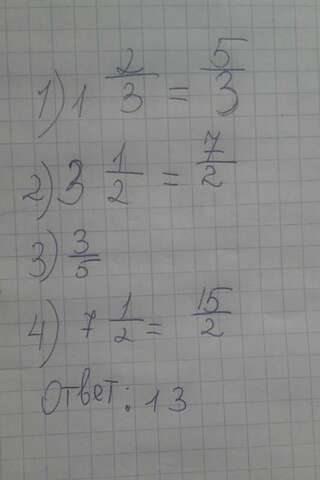 1) 1 2/3 = 5/3
2) 3 1/2 = 7/2
3) 3/5
4) 7 1/2 = 15/2
Ответ: 13